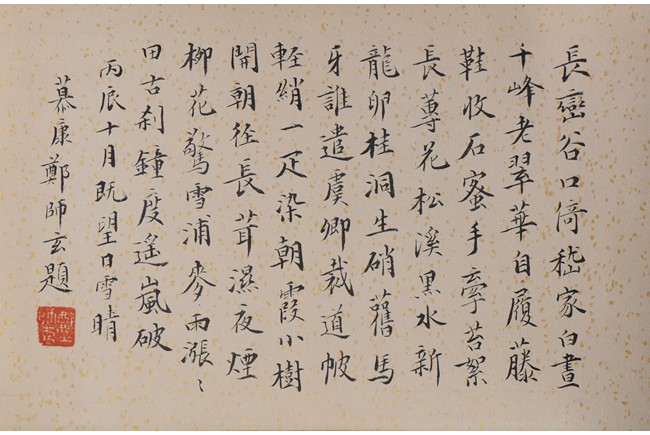 長巒谷口倚嵇家白晝
千峰老翠華自履藤
鞋收石蜜手牽苔絮
長蓴花松溪黑水新
龍卵桂洞生硝舊馬
牙誰遣虞卿裁道帔
輕綃一疋染朝霞小樹
開朝徑長茸濕夜煙
柳花驚雪浦麥雨漲〻
田古剎鐘度遙嵐破
丙辰十月既望日雪晴
慕康鄭師玄題